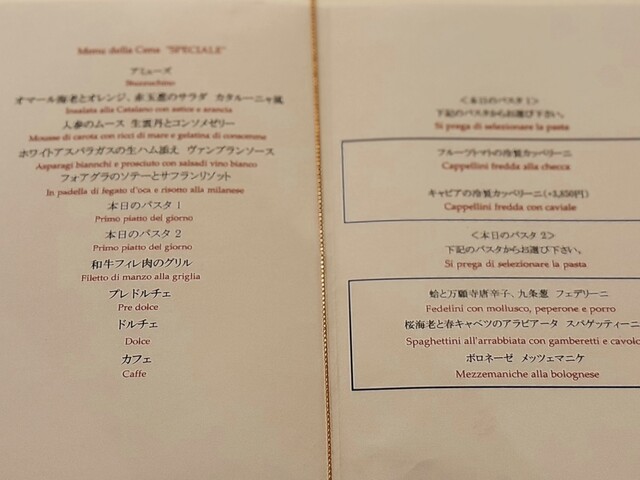 Menu della Cena "SPECIALE"
アミューズ
Stuzzuchino
オマール海老とオレンジ、赤玉葱のサラダ カタルーニャ風
Insalata alla Catalano con astice e arancia
人参のムース 生雲丹とコンソメゼリー
Mousse di carota con ricci di mare e gelatina di consomme
ホワイトアスパラガスの生ハム添え ヴァンブランソース
Asparagi biannchi e prosciuto con salsadi vino bianco
フォアグラのソテーとサフランリゾット
In padella di fegato d'oca e risotto alla milanese
本日のパスタ 1
Primo piatto del giorno
本日のパスタ 2
Primo piatto del giorno
和牛フィレ肉のグリル
Filetto di manzo alla griglia
プレドルチェ
Pre dolce
ドルチェ
Dolce
カフェ
Caffe
<本日のパスタ 1>
下記のパスタからお選び下さい。
Si prega di selezionare la pasta
フルーツトマトの冷製カッペリーニ
Cappellini fredda alla checca
キャビアの冷製カッペリーニ(+3,850円)
Cappellini fredda con caviale
<本日のパスタ 2>
下記のパスタからお選び下さい。
Si prega di selezionare la pasta
蛤と万願寺唐辛子、九条葱 フェデリーニ
Fedelini con mollusco, peperone e porro
桜海老と春キャベツのアラビアータ スパゲッティーニ
Spaghettini all'arrabbiata con gamberetti e cavolo
ボロネーゼ メッツェマニケ
Mezzemaniche alla bolognese